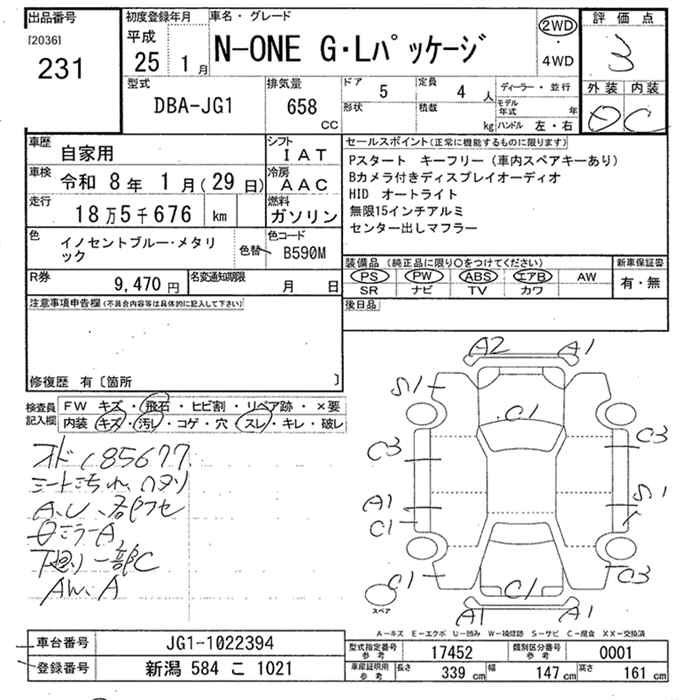 出品番号
[2036]
231
初度登録年月
平成
25 1月
車名・グレード
N-ONE G・Lパッケージ
2WD
・
4WD
評価点
3
外装 内装
C
型式
DBA-JG1
排気量
658
CC
ドア 5
形状
定員 4 人
積載 kg
ディーラー・並行
モデル年式 年
ハンドル 左・右
車歴
自家用
シフト
IAT
車検
令和 8年 1月(29日)
冷房
AAC
走行
18万5千676 km
燃料
ガソリン
色
イノセントブルー・メタリ
ック
色替
色コード
B590M
R券
9,470 円
名変通知期限
月 日
セールスポイント(正常に機能するものに限ります)
Pスタート キーフリー(車内スペアキーあり)
Bカメラ付きディスプレイオーディオ
HID オートライト
無限15インチアルミ
センター出しマフラー
装備品(純正品に限り○をつけてください)
PS PW ABS エアB AW
SR ナビ TV カワ
新車保証書
有・無
後日品
注意事項申告欄(不具合内容等は具体的に記入して下さい)
修復歴 有〔箇所 〕
検査員
記入欄
FW キズ・飛石・ヒビ割・リペア跡・×要
内装 キズ・汚レ・コゲ・穴・スレ・キレ・破レ
オド185677
シートよごれ、ヘタリ
A、U、各部フセ
ミラーA、
下廻り一部C
AW、A
A2 A1
S1
C1
C3 C3
A1 S1
C1
C1 C1 C3
A1 A1
スペア
A-キズ E-エクボ U-凹み W-補修跡 S-サビ C-腐食 XX-交換済
車台番号
JG1-1022394
登録番号
新潟 584 こ 1021
型式指定番号
参考
17452
類別区分番号
参考
0001
車庫証明用
参考
長さ 339 cm 幅 147 cm 高さ 161 cm